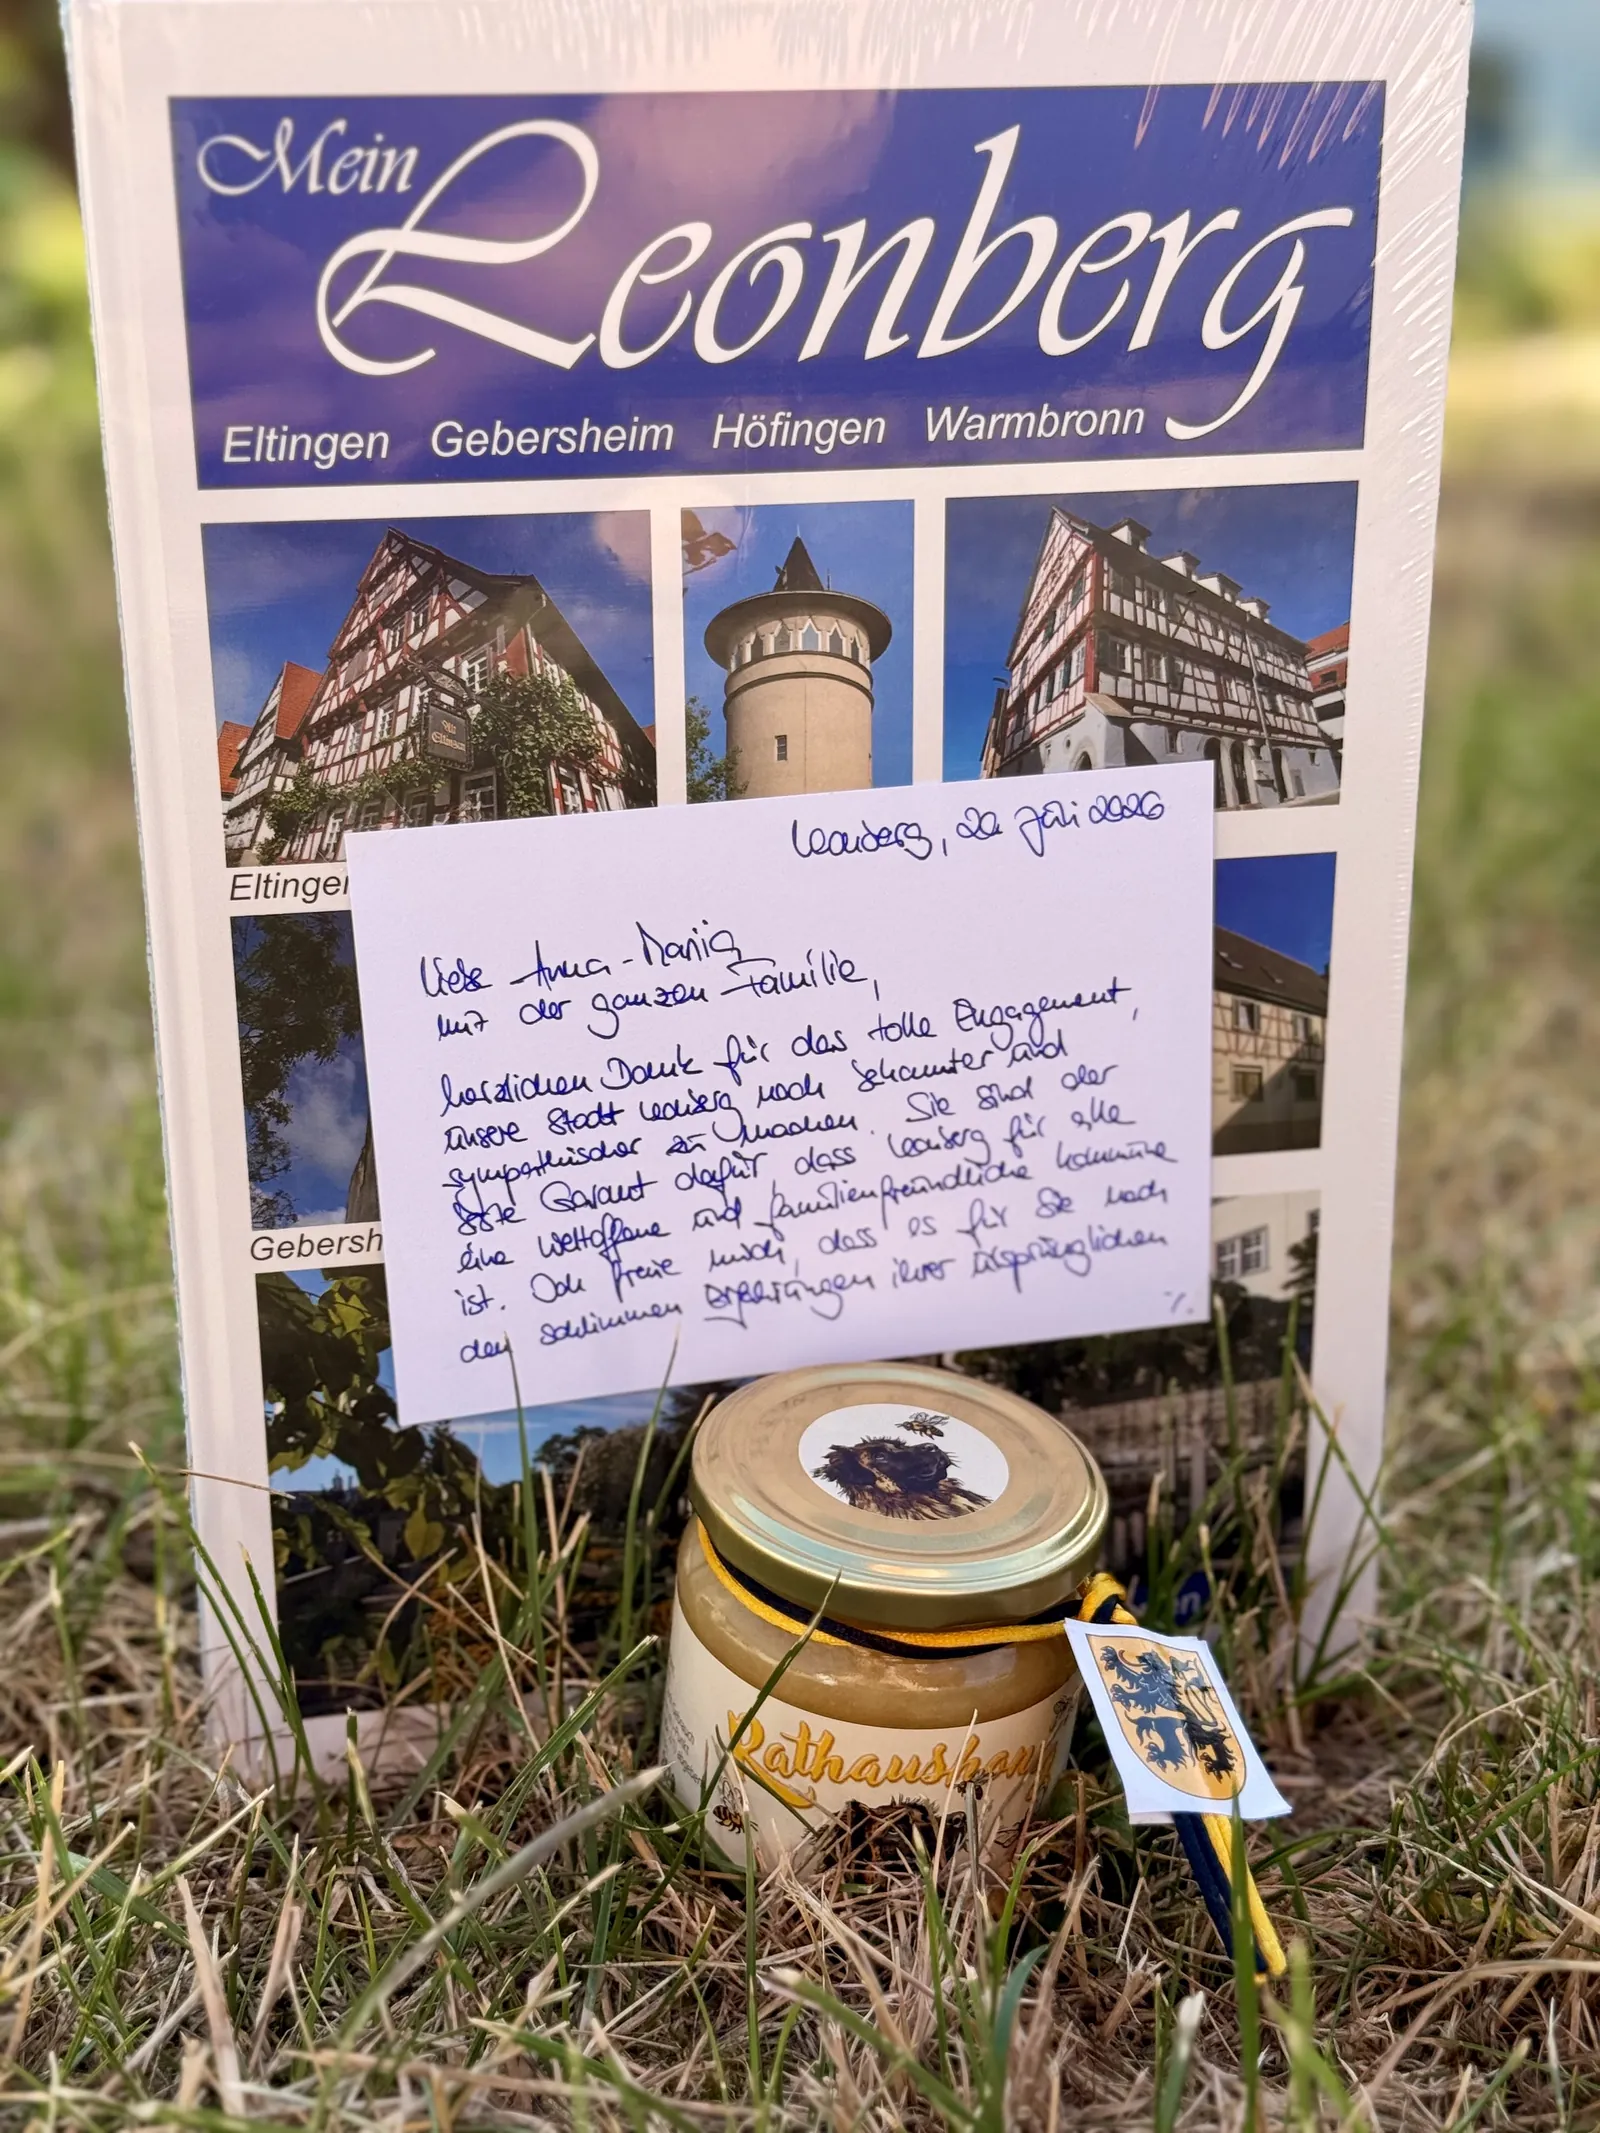 Mein
Leonberg
Eltingen Gebersheim Höfingen Warmbronn
Eltingen
Gebersh
Leonberg, 22. Juli 2026
Liebe Anna-Maria
mit der ganzen Familie,
herzlichen Dank für das tolle Engagement,
unsere Stadt Leonberg noch bekannter und
sympathischer zu machen. Sie sind der
beste Garant dafür, dass Leonberg für alle
eine weltoffene und familienfreundliche Kommune
ist. Ich freue mich, dass es für Sie nach
den schlimmen Erfahrungen ihrer ursprünglichen
./.
Rathaushonig